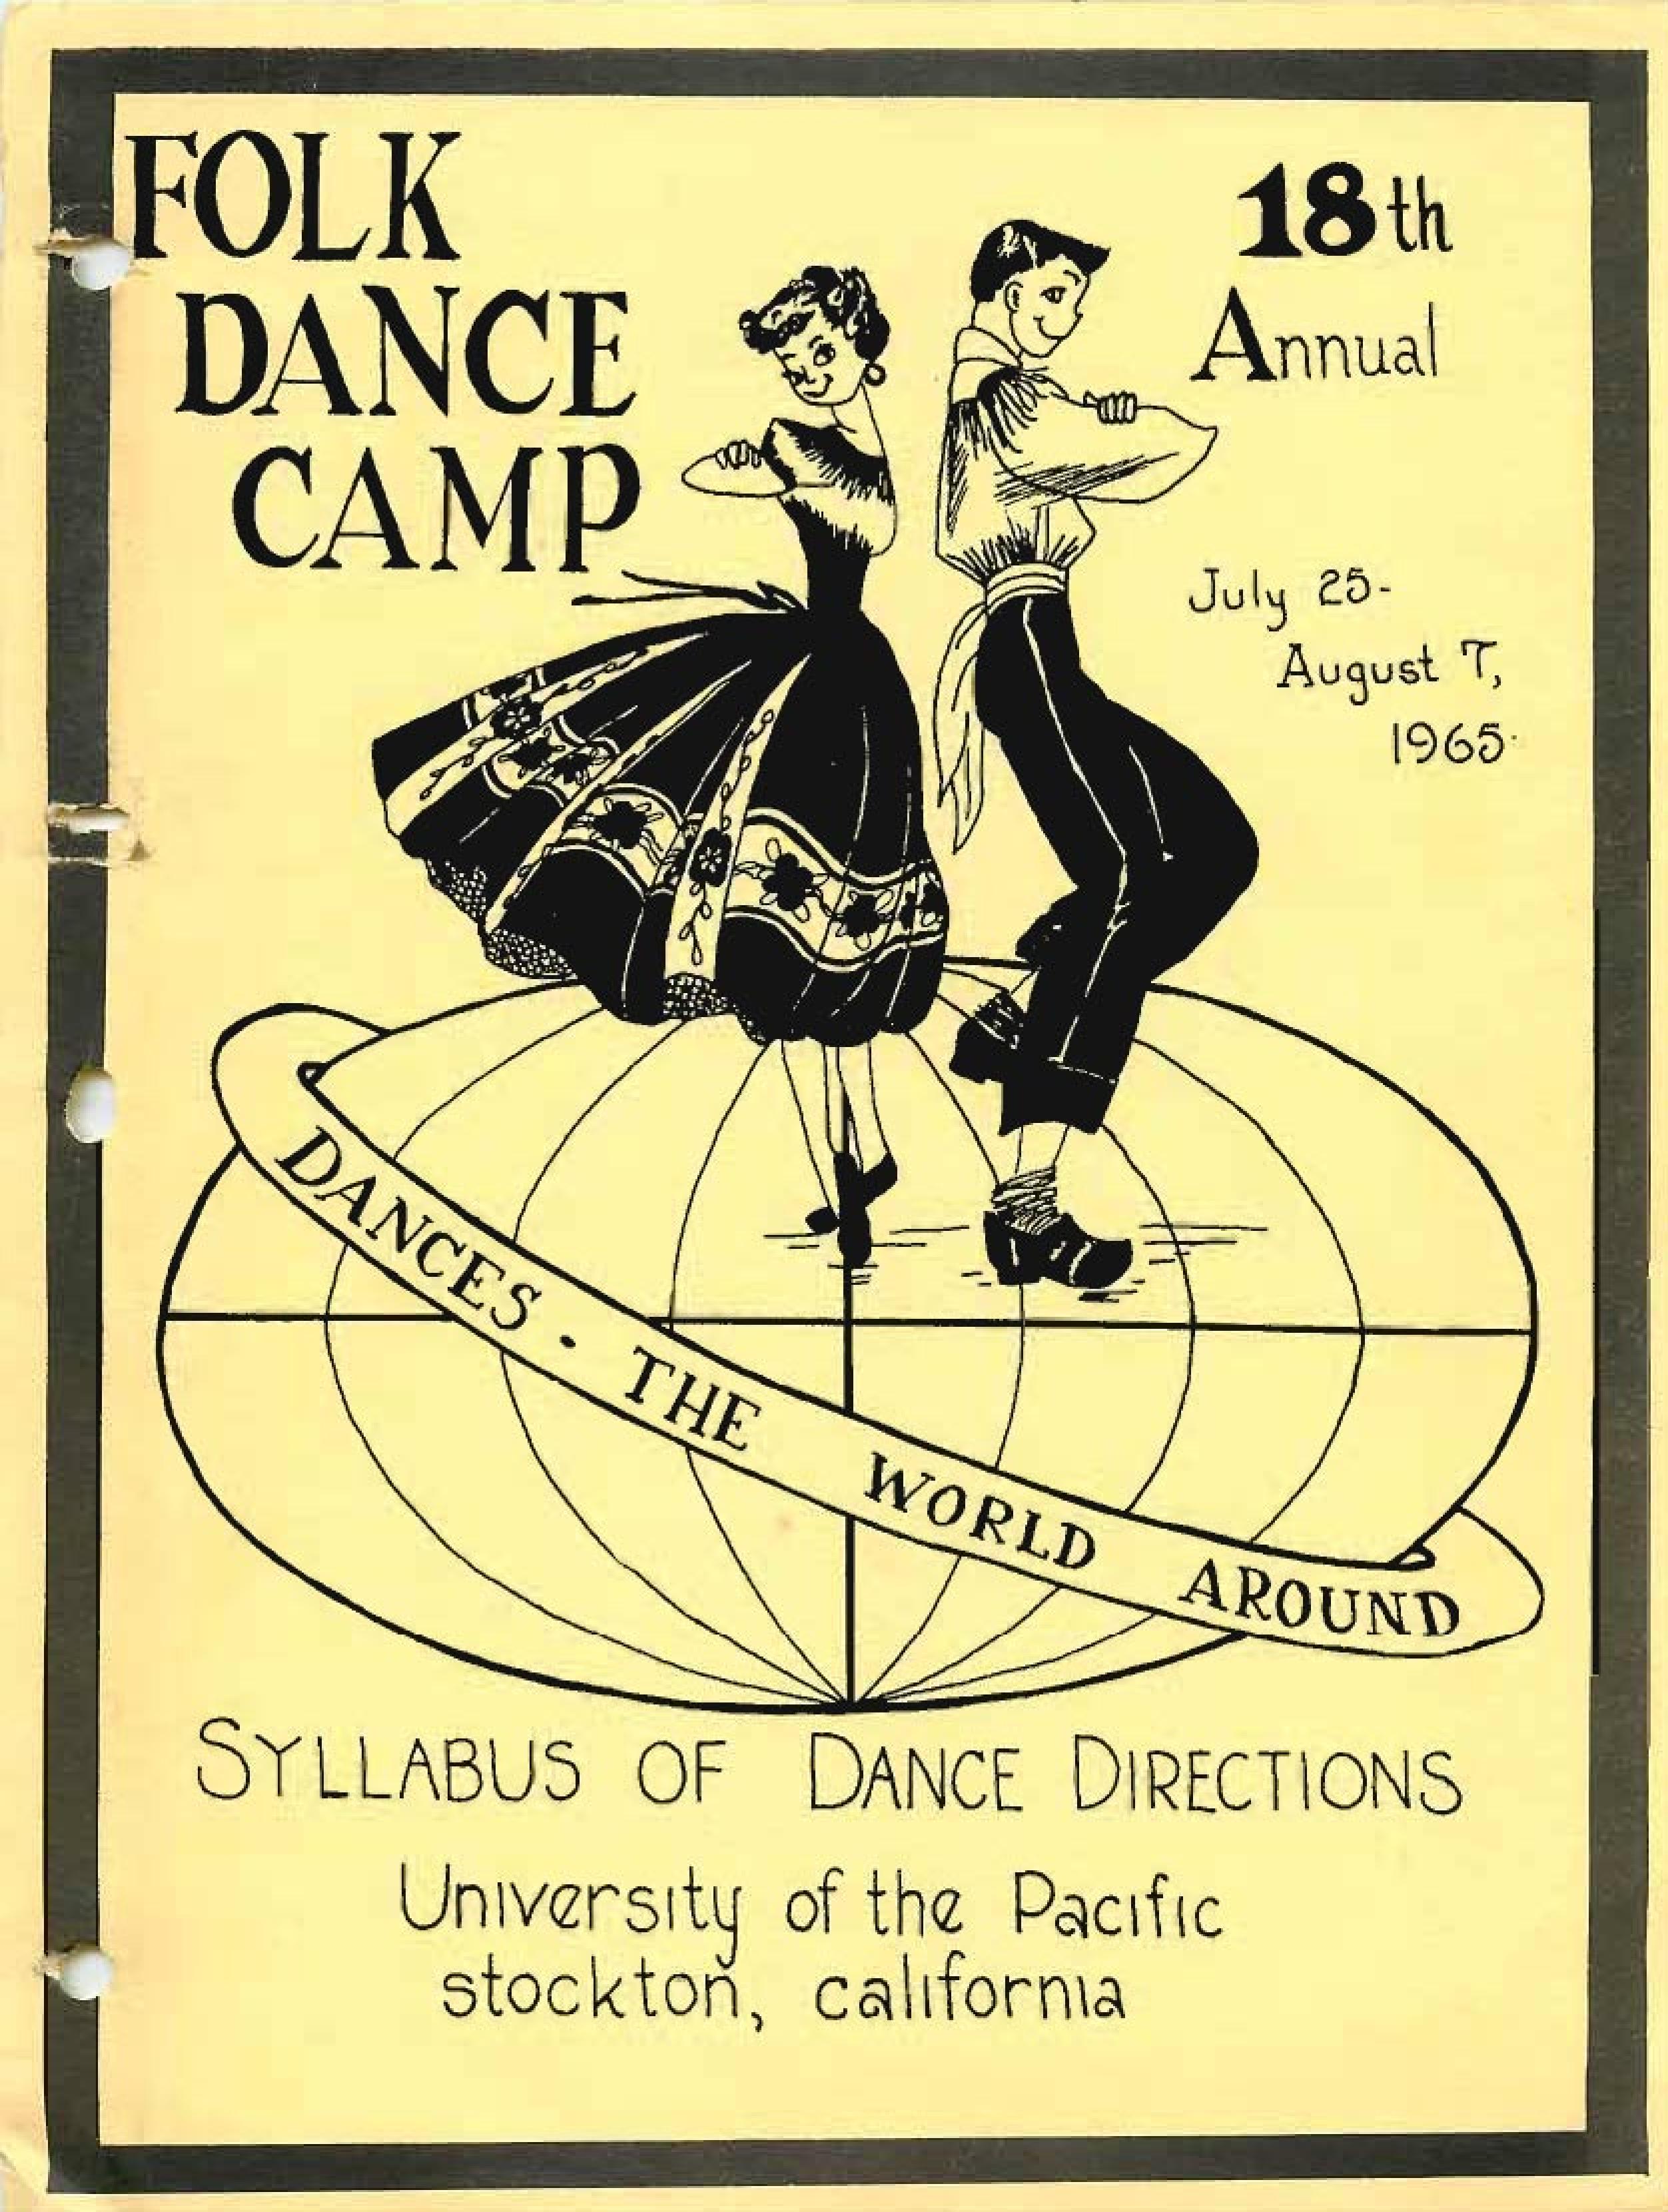 FOLK
DANCE
CAMP
18th
Annual
July 25-
August 7,
1965
DANCES · THE WORLD AROUND
SYLLABUS OF DANCE DIRECTIONS
University of the Pacific
stockton, california